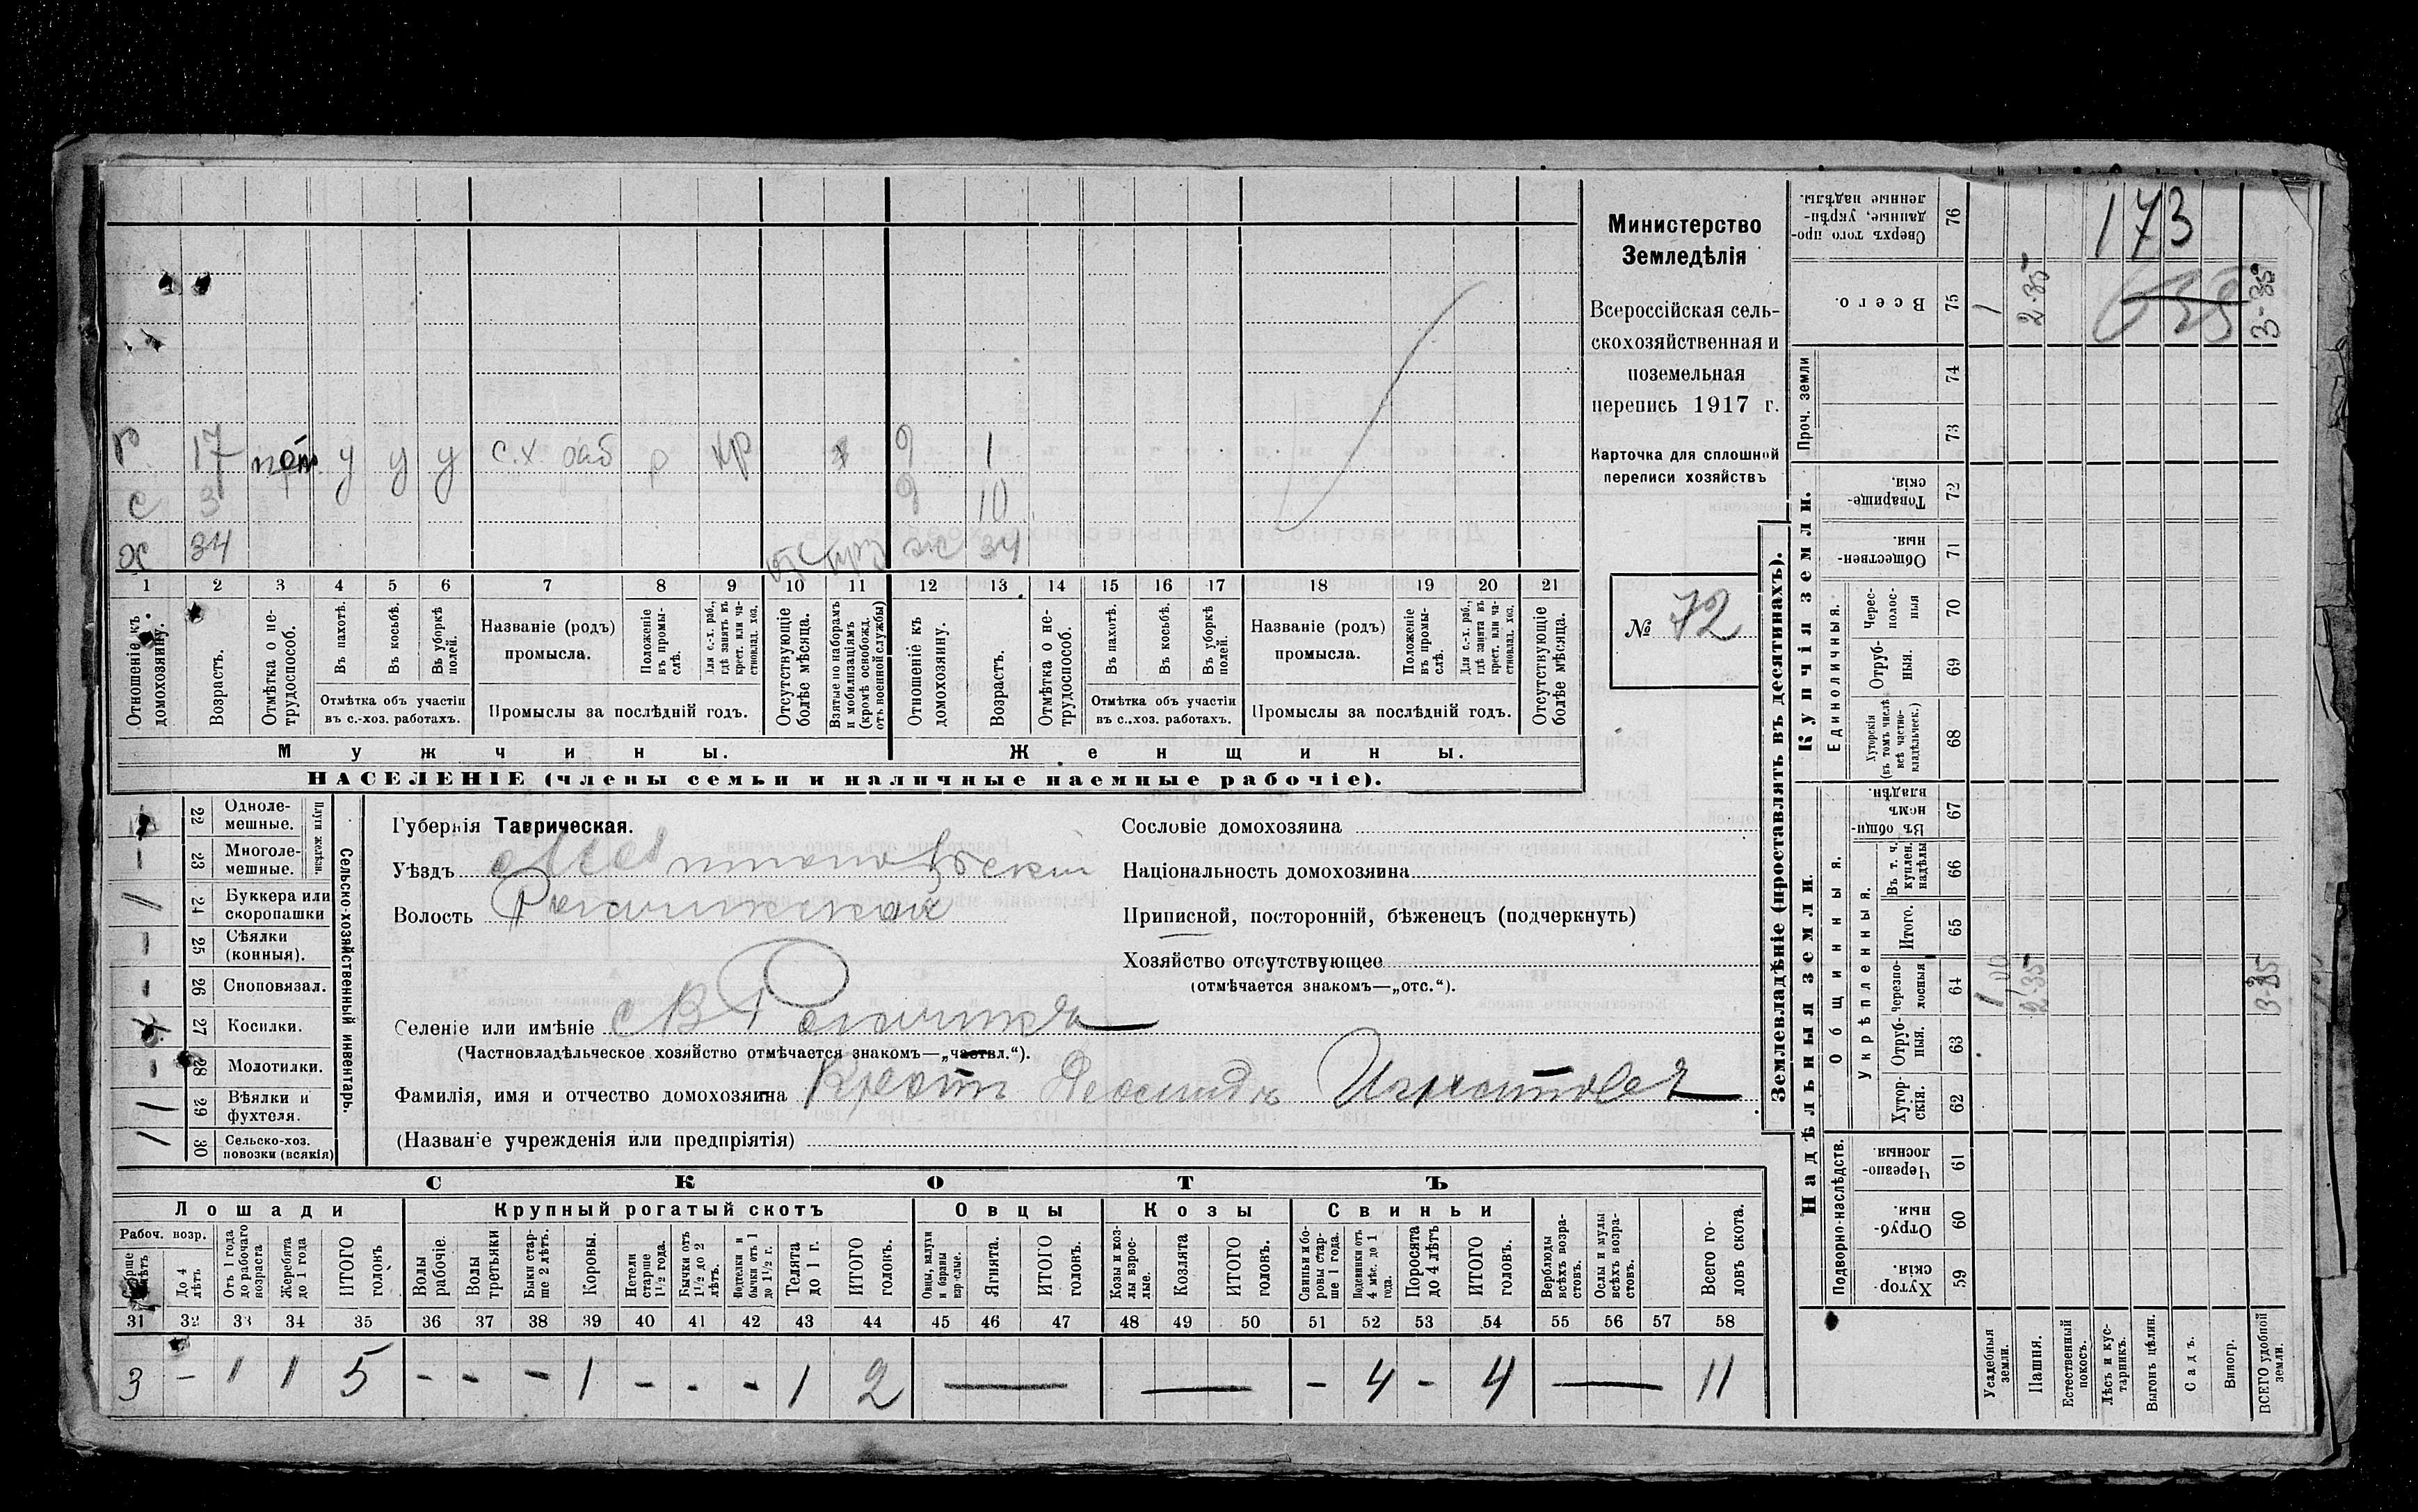 173
Р. 17 у у у с.х раб р кр 9 1
с 3 9 10
х 34 ж 34
1 2 3 4 5 6 7 8 9 10 11 12 13 14 15 16 17 18 19 20 21
Отношеніе къ домохозяину.
Возрастъ.
Отмѣтка о нетрудоспособ.
Въ пахотѣ.
Въ косьбѣ.
Въ уборкѣ полей.
Отмѣтка объ участіи въ с.-хоз. работахъ.
Названіе (родъ) промысла.
Положеніе въ промыслѣ.
Для с.-х. раб., гдѣ занятъ въ крест. или частновлад. хоз.
Промыслы за послѣдній годъ.
Отсутствующіе болѣе мѣсяца.
Взятые по наборамъ и мобилизаціямъ (кромѣ освобожд. отъ военной службы)
Отношеніе къ домохозяину.
Возрастъ.
Отмѣтка о нетрудоспособ.
Въ пахотѣ.
Въ косьбѣ.
Въ уборкѣ полей.
Отмѣтка объ участіи въ с..хоз. работахъ.
Названіе (родъ) промысла.
Положеніе въ промыслѣ.
Для с.-х. раб., гдѣ занята въ крест. или частновлад. хоз.
Промыслы за послѣдній годъ.
Отсутствующіе болѣе мѣсяца.
Мужчины. Женщины.
НАСЕЛЕНІЕ (члены семьи и наличные наемные рабочіе).
Министерство
Земледѣлія
Всероссійская сель-
скохозяйственная и
поземельная
перепись 1917 г.
Карточка для сплошной
переписи хозяйствъ
№ 72
22 Одноле-мешные.
23 Многоле-мешные.
Плуги желѣзн.
24 Буккера или скоропашки
25 Сѣялки (конныя).
26 Сноповязал.
27 Косилки.
28 Молотилки.
29 Вѣялки и фухтеля.
30 Сельско-хоз. повозки (всякія)
Сельско-хозяйственный инвентарь.
Губернія Таврическая.
Уѣздъ Мелитопольскій
Волость
Селеніе или имѣніе
(Частновладѣльческое хозяйство отмѣчается знакомъ—„частвл.“).
Фамилія, имя и отчество домохозяина
(Названіе учрежденія или предпріятія)
Сословіе домохозяина
Національность домохозяина
Приписной, посторонній, бѣженецъ (подчеркнуть)
Хозяйство отсутствующее
(отмѣчается знакомъ—„отс.“).
СКОТЪ
Лошади Крупный рогатый скотъ Овцы Козы Свиньи
Рабоч. возр.
До 4 лѣтъ
Отъ 1 года до рабочаго возраста
Жеребята до 1 года
ИТОГО головъ
Волы рабочіе.
Волы третьяки
Быки старше 2 лѣтъ.
Коровы.
Нетели старше 1½ года.
Бычки отъ 1½ до 2 лѣтъ.
Подтелки и бычки отъ 1 до 1½ г.
Телята до 1 г.
ИТОГО головъ.
Овцы, валухи и бараны взрослые.
Ягнята.
ИТОГО головъ.
Козы и козлы взрослые.
Козлята
ИТОГО головъ.
Свиньи и боровы старше 1 года.
Подсвинки отъ 4 мѣс. до 1 года.
Поросята до 4 лѣтъ
ИТОГО головъ.
Верблюды всѣхъ возрастовъ.
Ослы и мулы всѣхъ возрастовъ.
Всего головъ скота.
31 32 33 34 35 36 37 38 39 40 41 42 43 44 45 46 47 48 49 50 51 52 53 54 55 56 57 58
3 – 1 1 5 – – – 1 – – – 1 2 — — – 4 – 4 — 11
Землевладѣніе (проставлять въ десятинахъ).
Надѣльныя земли. Купчія земли.
Подворно-наслѣдств.
Общинныя.
Укрѣпленныя.
Единоличныя.
Проч. земли
59 Хуторскія.
60 Отрубныя.
61 Черезполосныя.
62 Хуторскія.
63 Отрубныя.
64 Черезполосныя
65 Итого.
66 Въ т. ч. куплен. надѣлы
67 Въ общинномъ владѣн.
68 Хуторскія (въ томъ числѣ всѣ частновладѣльческ.)
69 Отрубныя.
70 Чересполосныя
71 Общественныя.
72 Товарищескія.
73
74
75 Всего.
76 Сверхъ того проданные, укрѣпленные надѣлы.
Усадебныя земли.
Пашня.
Естественный покосъ.
Лѣсъ и кустарникъ.
Выгонъ цѣлин.
Садъ.
Виногр.
ВСЕГО удобной земли.
1 2.35 3-35